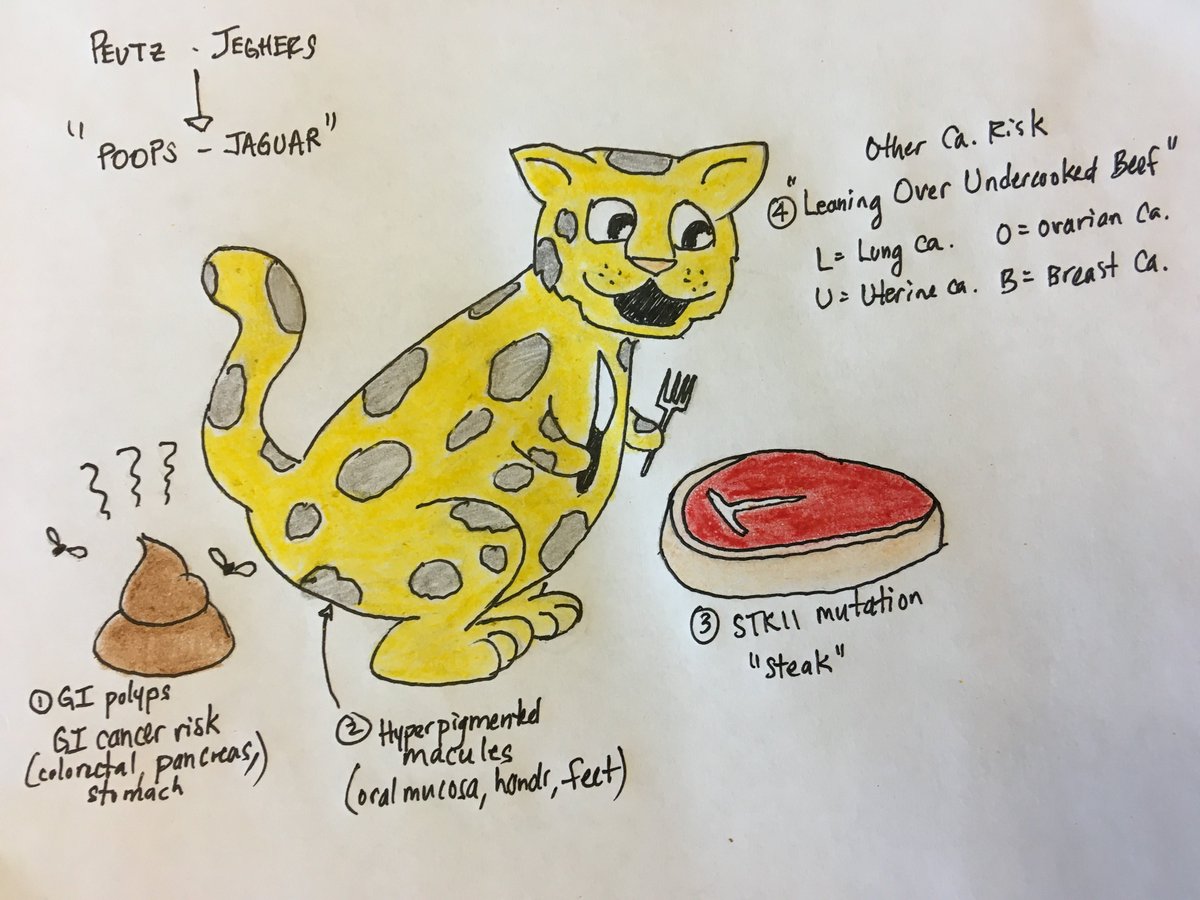 PEUTZ - JEGHERS
"POOPS - JAGUAR"
Other Ca. Risk
④ "Leaning Over Undercooked Beef"
L = Lung Ca. O = Ovarian Ca.
U = Uterine Ca. B = Breast Ca.
③ STK11 mutation
"steak"
① GI polyps
GI cancer risk
(colorectal, pancreas,)
stomach
② Hyperpigmented
macules
(oral mucosa, hands, feet)